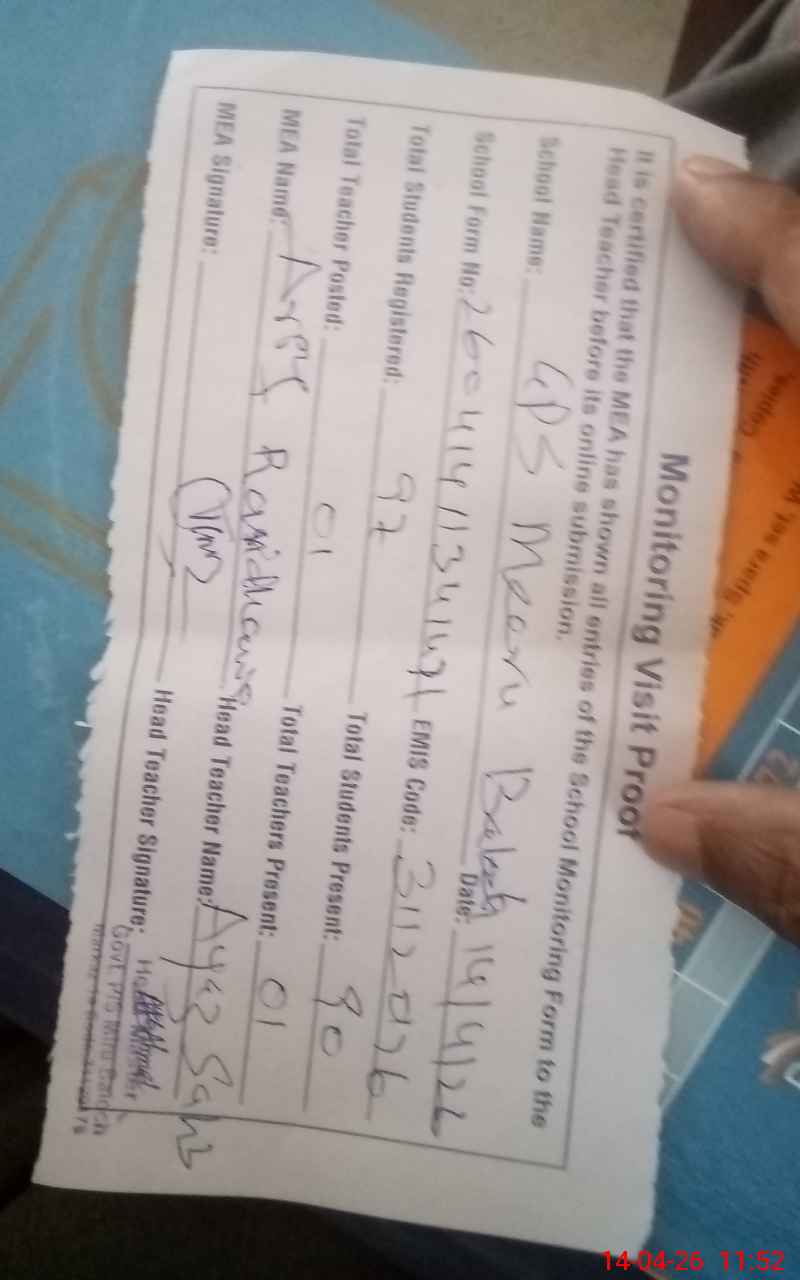 Monitoring Visit Proof
It is certified that the MEA has shown all entries of the School Monitoring Form to the
Head Teacher before its online submission.
School Name: GPS Meeru Baloch Date: 14/4/26
School Form No: 26041411341471 EMIS Code: 31120176
Total Students Registered: 97 Total Students Present: 90
Total Teacher Posted: 01 Total Teachers Present: 01
MEA Name: Head Teacher Name: Ayaz Sahb
MEA Signature: Head Teacher Signature:
Govt. Baloch
14-04-26 11:52